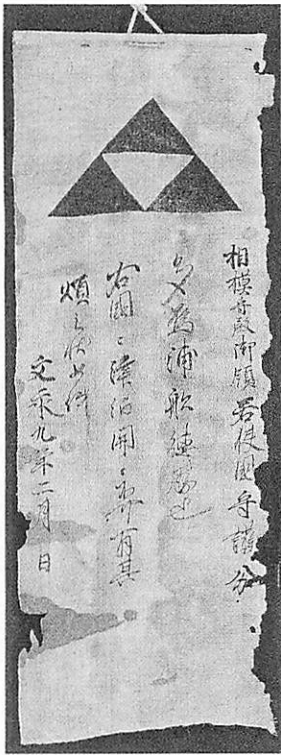 相模守殿御領若狭國守護分
多烏浦船徳勝也
右國々津泊関々不可有其
煩之状如件
文永九年二月 日